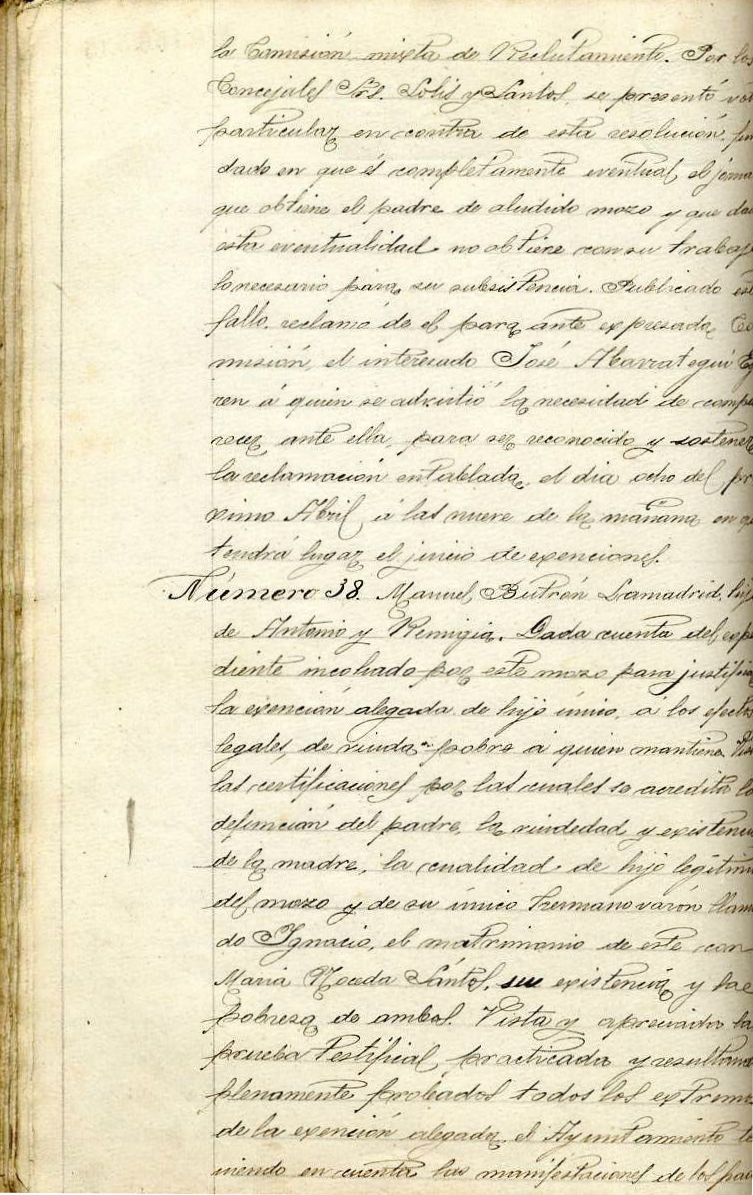 la Comisión mixta de Reclutamiento. Por los
Concejales Srs. Solis y Santos, se presentó vot
particular en contra de esta resolución, fun
dado en que és completamente eventual el jorna
que obtiene el padre de aludido mozo y que da
esta eventualidad no obtiene con su trabajo
lo necesario para su subsistencia. Publicado est
fallo, reclamó de el para ante expresada Co
misión, el interesado José Abarrategui
ren á quien se advirtió la necesidad de compa
recer ante ella, para ser reconocido y sostener
la reclamación entablada, el dia ocho del pr
ximo Abril á las nueve de la mañana en q
tendrá lugar el juicio de exenciones.
Número 38. Manuel Butrón Lamadrid, hijo
de Antonio y Remigia. Dada cuenta del expe
diente incohado por este mozo para justificar
la exención alegada de hijo único, á los efectos
legales, de viuda pobre á quien mantiene. Vis
las certificaciones por las cuales se acredita la
defunción del padre, la viudedad y existenci
de la madre, la cualidad de hijo legítimo
del mozo y de su único hermano varón llama
do Ignacio, el matrimonio de este con
Maria Noceda Santos, su existencia y la
pobreza de ambos. Vista y apreciada la
prueba testifical practicada y resultando
plenamente probados todos los extremo
de la exención alegada, el Ayuntamiento te
niendo en cuenta las manifestaciones de los